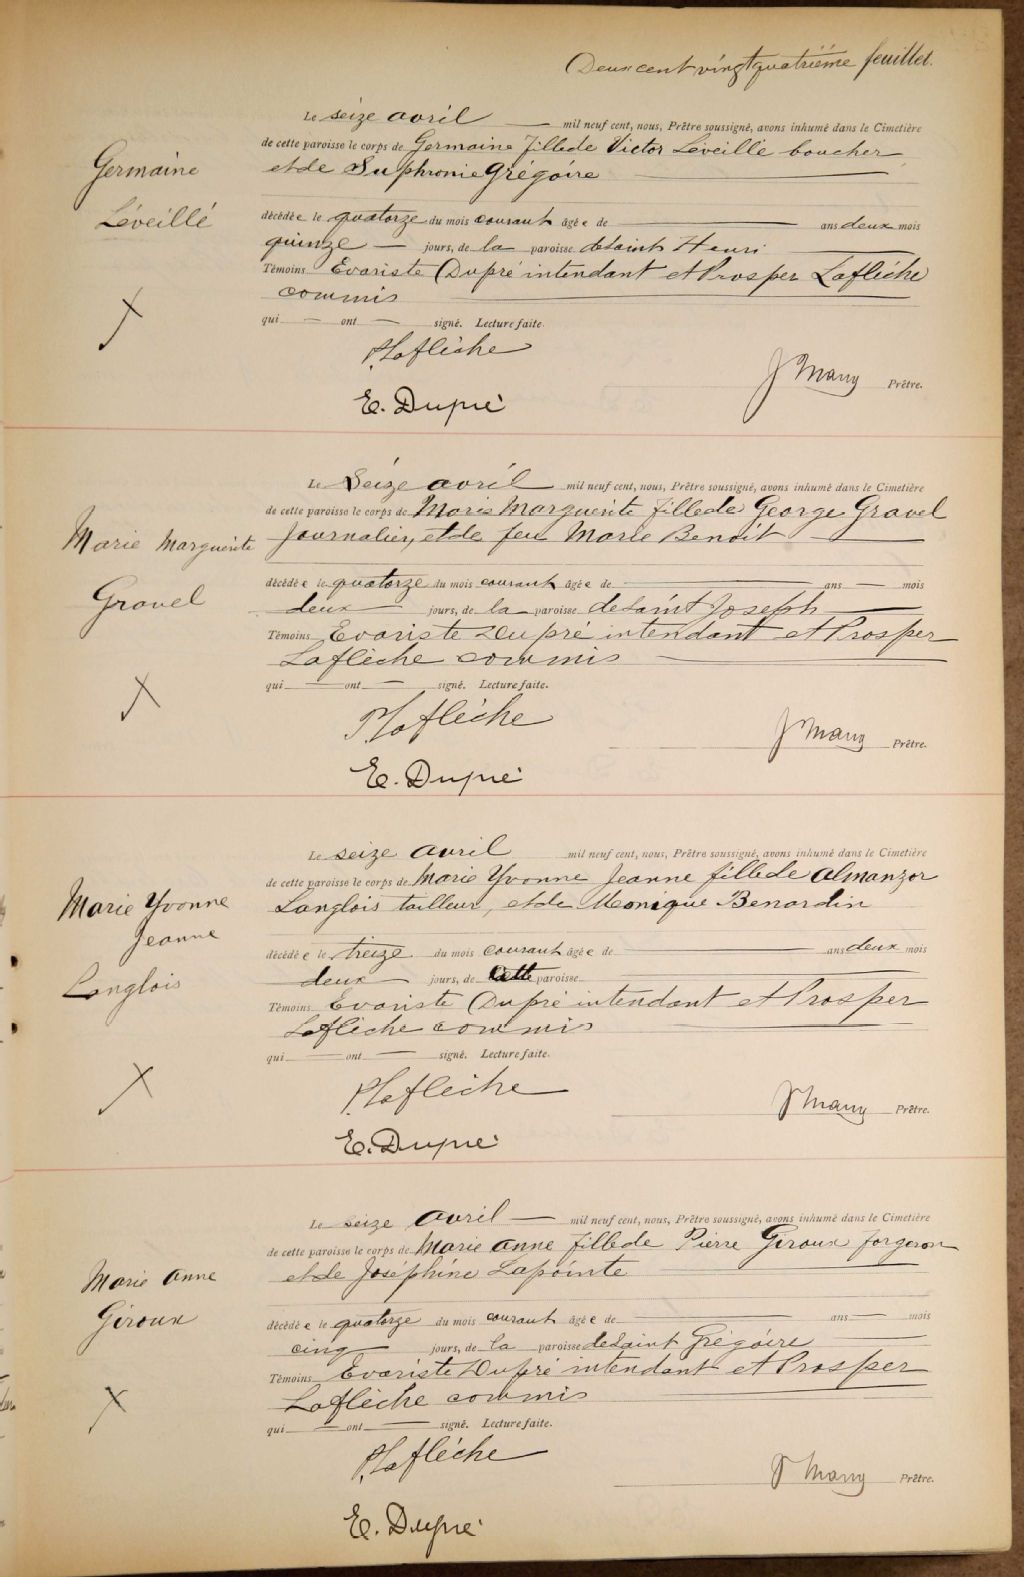 Deux cent vingt quatrième feuillet.
Le seize avril — mil neuf cent, nous, Prêtre soussigné, avons inhumé dans le Cimetière
de cette paroisse le corps de Germaine fille de Victor Léveillé boucher
et de Suphronie Grégoire
Germaine
Léveillé
décédée le quatorze du mois courant âgée de — ans deux mois
quinze — jours, de la paroisse de Saint Henri
Témoins Evariste Dupré intendant et Prosper Laflèche
commis
qui — ont — signé. Lecture faite.
P. Laflèche
J Many Prêtre.
E. Dupré
Le Seize avril mil neuf cent, nous, Prêtre soussigné, avons inhumé dans le Cimetière
de cette paroisse le corps de Marie Marguerite fille de George Gravel
Journalier, et de feu Marie Benoit —
Marie Marguerite
Gravel
décédée le quatorze du mois courant âgée de — ans — mois
deux jours, de la paroisse de Saint Joseph —
Témoins Evariste Dupré intendant et Prosper
Laflèche commis —
qui — ont — signé. Lecture faite.
P. Laflèche
J Many Prêtre.
E. Dupré
Le seize avril mil neuf cent, nous, Prêtre soussigné, avons inhumé dans le Cimetière
de cette paroisse le corps de Marie Yvonne Jeanne fille de Almanzor
Langlois tailleur, et de Monique Benardin
Marie Yvonne
Jeanne
Langlois
décédée le treize du mois courant âgée de — ans deux mois
deux jours, de cette paroisse —
Témoins Evariste Dupré intendant et Prosper
Laflèche commis —
qui — ont — signé. Lecture faite.
P. Laflèche
J Many Prêtre.
E. Dupré
Le seize avril — mil neuf cent, nous, Prêtre soussigné, avons inhumé dans le Cimetière
de cette paroisse le corps de Marie Anne fille de Pierre Giroux forgeron
et de Joséphine Lapointe —
Marie Anne
Giroux
décédée le quatorze du mois courant âgée de — ans — mois
cinq jours, de la paroisse de Saint Grégoire —
Témoins Evariste Dupré intendant et Prosper
Laflèche commis —
qui — ont — signé. Lecture faite.
P. Laflèche
J Many Prêtre.
E. Dupré